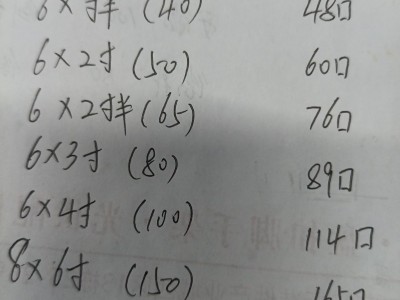 6×寸半(40) 48口
6×2寸(50) 60口
6×2寸半(65) 76口
6×3寸(80) 89口
6×4寸(100) 114口
8×6寸(150) 165口